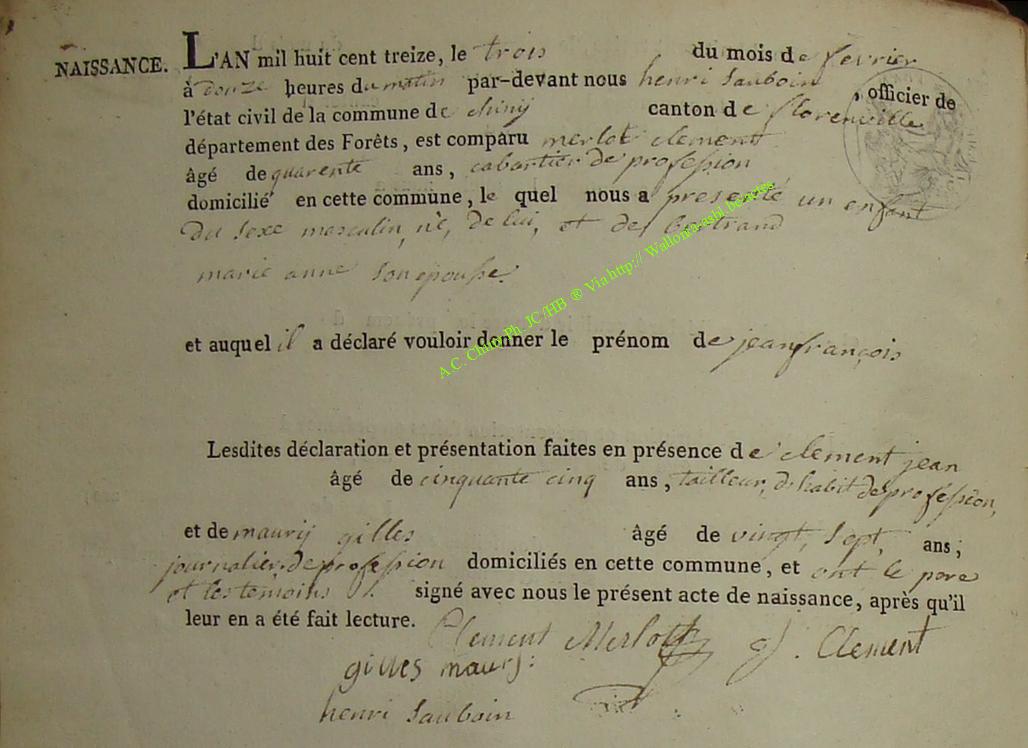 NAISSANCE. L'AN mil huit cent treize, le trois du mois de fevrier
à douze heures du matin par-devant nous henri Sauboin , officier de
l'état civil de la commune de chinij canton de florenville
département des Forêts, est comparu merlot clement
âgé de quarente ans, cabartier de profession
domicilié en cette commune, le quel nous a presenté un enfant
du sexe mesculin, né, de lui, et de bertrand
marie anne son epouse.
et auquel il a déclaré vouloir donner le prénom de jean françois
Lesdites déclaration et présentation faites en présence de clement jean
âgé de cinquante cinq ans, tailleur, d'habit de profession,
et de maurij gilles âgé de vingt, sept, ans;
journalier, de profession domiciliés en cette commune, et ont le pere
et les temoins signé avec nous le présent acte de naissance, après qu'il
leur en a été fait lecture.
Clement Merlott J. Clement
gilles maurj:
henri Sauboin
A.C. Chiny Ph. JC/HB ® Via http:// Wallonica-asbl.be